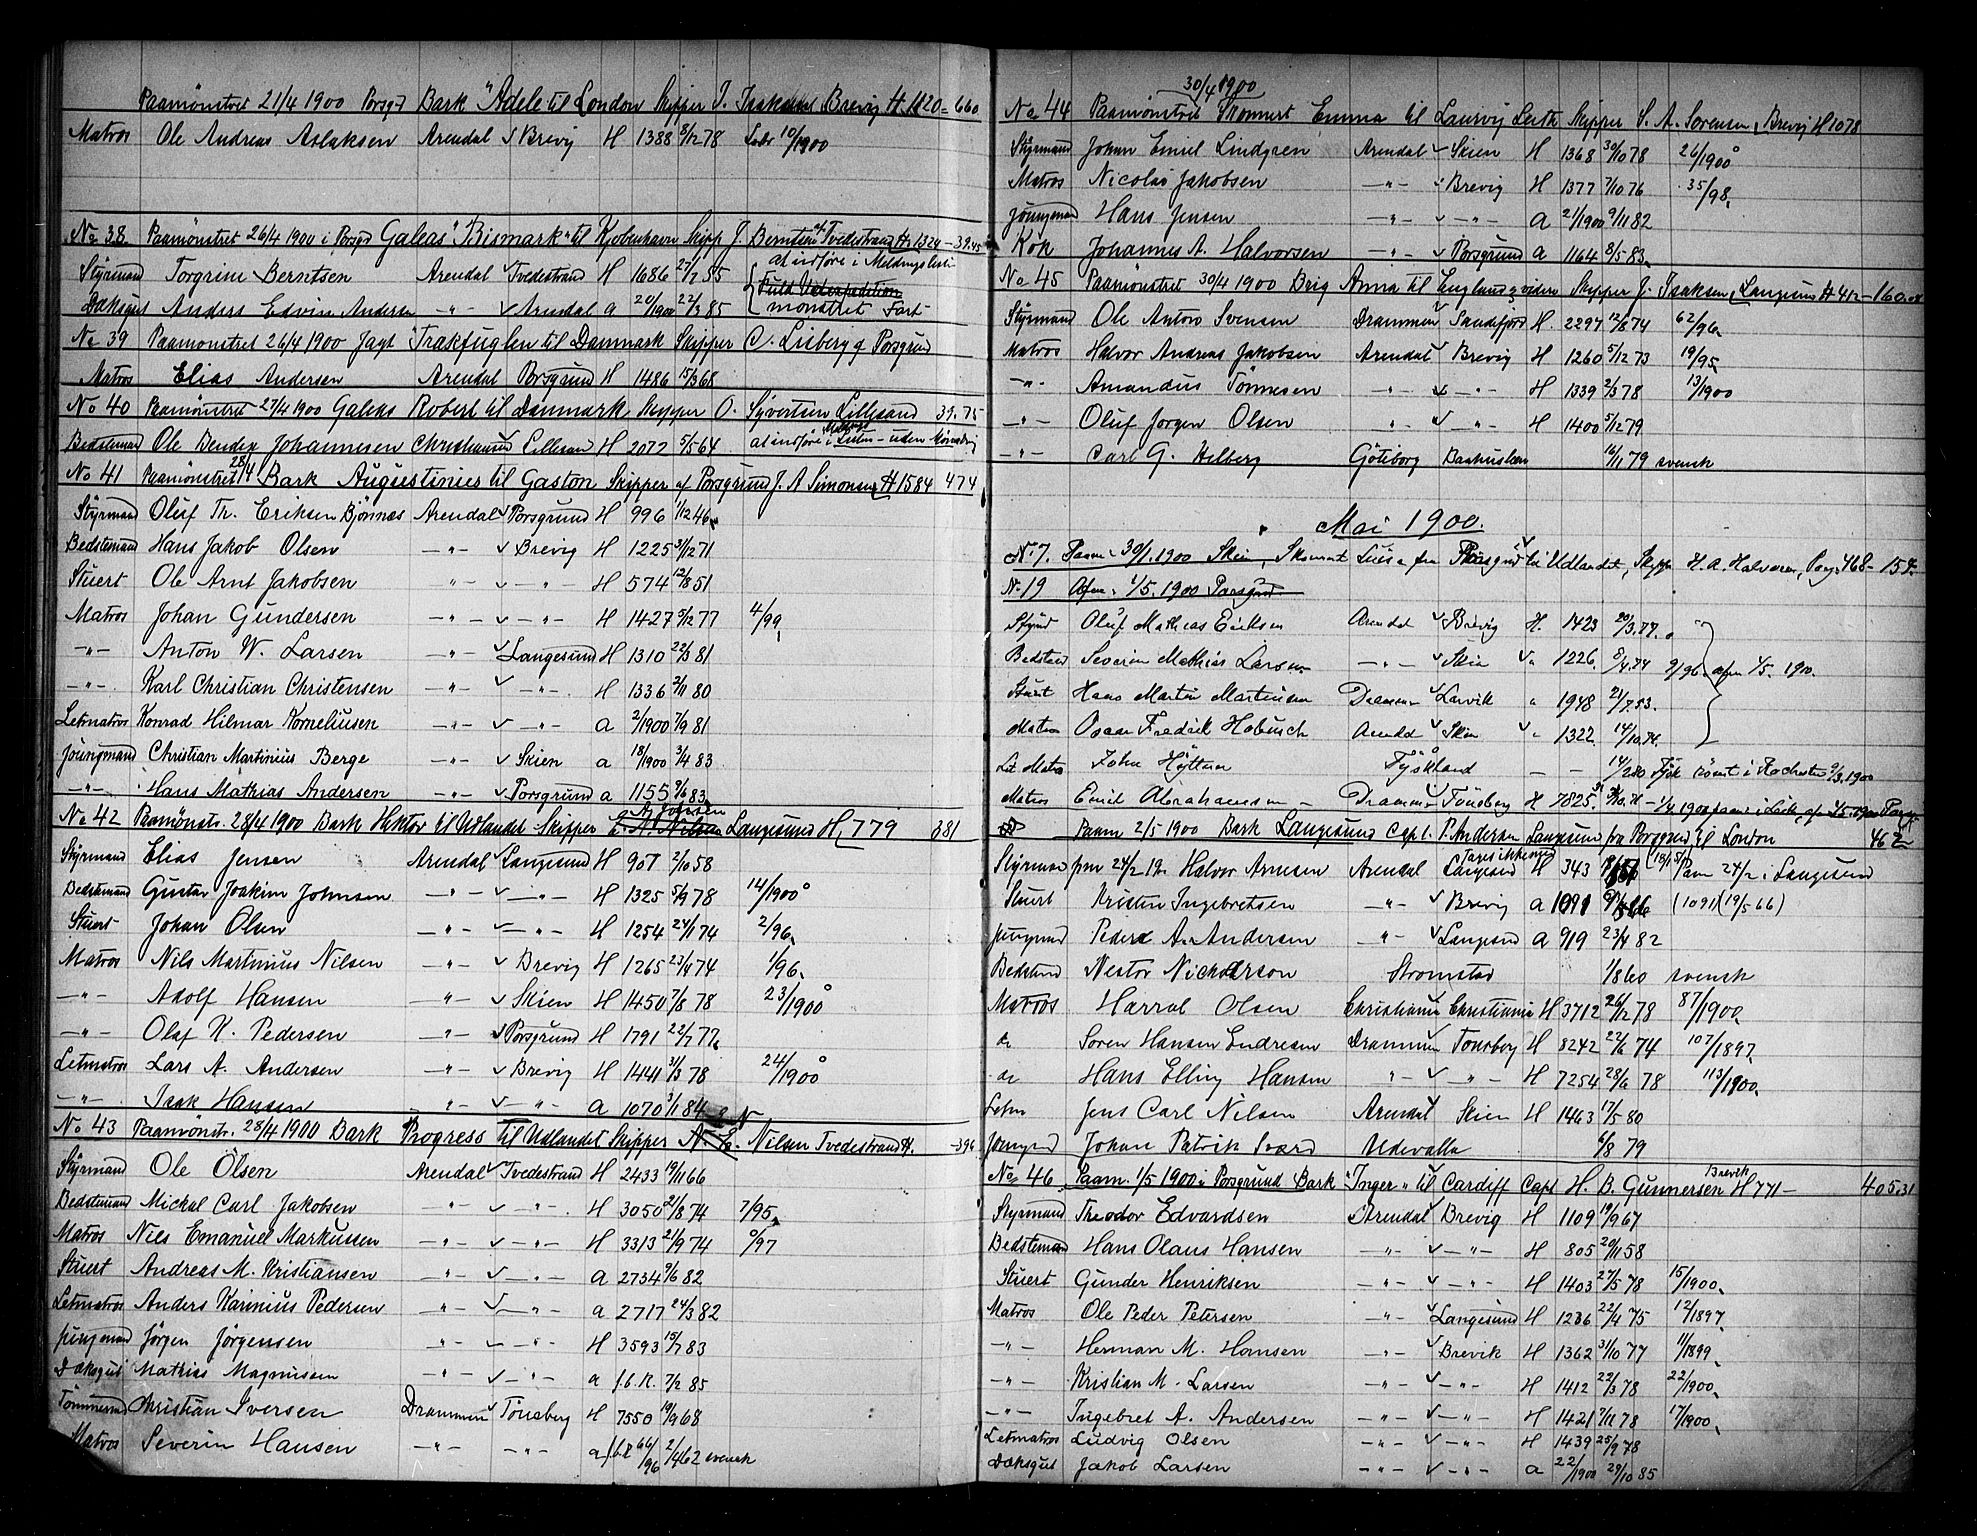 Paamönstret 21/4 1900 Porsgd Bark "Adele til London Skipper J. Isaksen Brevig H. 1120 = 660
Matros Ole Andreas Aslaksen Arendal Brevig H 1388 8/12 78 10/1900
No 38. Paamönstret 26/4 1900 i Porsgd Galeas "Bismark" til Kjøbenhavn Skipp J. Berntsen af Tvedestrand H. 1324 - 39.45
Styrmand Torgrim Berntsen Arendal Tvedestrand H 1686 27/2 85 at indføre i Meldingsliste
Dæksgut Anders Edvin Andersen -"- Arendal a 20/1900 22/3 85 mönstret Fart
No 39 Paamönstret 26/4 1900 Jagt "Trækfuglen til Danmark Skipper C. Lisberg af Porsgrund
Matros Elias Andersen Arendal Porsgrund H 1486 15/3 68
No 40 Paamönstret 27/4 1900 Galeas Robert til Danmark Skipper O. Syvertsen Lillesand 39.75
Bedstemand Ole Bendix Johannesen Christiansand Lillesand H 2077 5/5 64 at indføre i
No 41 Paamönstret 28/4 Bark Augustinius til Gaston Skipper af Porsgrund J. A Simonsen H 1584 474
Styrmand Oluf Th. Eriksen Bjönnes Arendal Porsgrund H 996 1/12 46
Bedstemand Hans Jakob Olsen -"- Brevig H 1225 3/12 71
Stuert Ole Arnt Jakobsen -"- -"- H 574 12/8 51
Matros Johan Gundersen -"- -"- H 1427 5/12 77 4/99
-"- Anton W. Larsen -"- Langesund H 1310 22/3 81
-"- Karl Christian Christensen -"- -"- H 1336 2/11 80
Letmatros Konrad Hilmar Korneliusen -"- -"- a 2/1900 7/9 81
Joungmand Christian Martinius Berge -"- Skien a 18/1900 3/4 83
-"- Hans Mathias Andersen -"- Porsgrund a 1155 9/6 83
No 42 Paamönstr. 28/4 1900 Bark Hektor til Udlandet Skipper Langesund H. 779 381
Styrmand Elias Jensen Arendal Langesund H 907 2/10 58
Bedstemand Gustav Joakim Johnsen -"- -"- H 1325 5/9 78 14/1900
Stuert Johan Olsen -"- -"- H 1254 24/1 74 2/96
Matros Nils Martinius Nilsen -"- Brevig H 1265 23/4 74 1/96
-"- Adolf Hansen -"- Skien H 1450 7/8 78 23/1900
-"- Olaf K. Pedersen -"- Porsgrund H 1791 22/7 77
Letmatros Lars A. Andersen -"- Brevig H 1441 3/3 78 24/1900
-"- Isak Hansen -"- -"- a 1070 3/1 84
No 43 Paamönstr. 28/4 1900 Bark Progress til Udlandet Skipper Nilsen Tvedestrand H. -396
Styrmand Ole Olsen Arendal Tvedestrand H 2433 19/11 66
Bedstemand Mickal Carl Jakobsen -"- -"- H 3050 21/8 74 7/95
Matros Nils Emanuel Markussen -"- -"- H 3313 21/9 74 9/97
Stuert Andreas M. Kristiansen -"- -"- a 2734 9/6 82
Letmatros Anders Karinius Pedersen -"- -"- a 2717 24/3 82
Jungmand Jørgen Jørgensen -"- -"- H 3593 15/7 83
Dæksgut Mathias Magnussen -"- -"- a f.b.R. 7/2 85
Tömmermd Christian Iversen Drammen Tönsberg H 7550 19/9 68
Matros Severin Hansen -"- -"- a f.b.R 66/96 2/4 62 svensk
30/4 1900
No 44 Paamönstret Skonnert Emma til Laurvig Leith Skipper S. A. Sorensen, Brevig H 1078
Styrmand Johan Emiel Lindgren Arendal Skien H 1368 30/10 78 26/1900
Matros Nicolai Jakobsen -"- Brevig H 1377 7/10 76 35/98
Joungmand Hans Jensen -"- -"- a 21/1900 9/11 82
Kok Johannes A. Halvorsen -"- Porsgrund a 1164 8/5 83
No 45 Paamönstret 30/4 1900 Brig Anna til England & videre Skipper J. Isaksen, Langesund H 412 - 160
Styrmand Ole Anton Svensen Drammen Sandefjord H. 2297 12/8 74 62/96
Matros Halvor Andreas Jakobsen Arendal Brevig H 1260 5/12 73 19/95
-"- Amandus Tönnesen -"- -"- H 1339 2/3 78 13/1900
-"- Oluf Jorgen Olsen -"- -"- H 1400 5/12 79
-"- Carl G. Helberg Göteborg Baahuslen 16/11 79 svensk
Mai 1900.
No 7. Paam. 30/1. 1900 Skien, Skonnert fra Porsgrund til Udlandet, Skipper H. A. Halvorsen, Porsg. 468 - 159
No 19 Afm. 1/5. 1900 Porsgrund
Styrmd Oluf Mathias Eriksen Arendal Brevig H. 1423 20/3.77.
Bedstmd Severin Mathias Larsen -"- Skien " 1226. 8/4.74 9/96 afm 1/5. 1900.
Stuert Hans Martin Martinsen Drammen Larvik " 1948 21/7 53.
Matros Oscar Fredrik Hobusch Arendal Skien " 1322. 14/10.76.
Let Matros John Tyskland - - 14/2 80 Tysk rømt i Rochester 9/3 1900
Matros Emil Abrahamsen - Drammen Tönsberg H 7825.
Paam 2/5 1900 Bark Langesund Capt. P. Andersen Langesund fra Porsgrund til London 462
Styrmand pm 24/2 19. Halvor Arnesen Arendal Langesund H 343 Paam 24/2 i Langesund
Stuert Kristen Ingebretsen -"- Brevig a 1091 (1091) (19/5 66)
Jungmd Peder A. Andersen -"- Langesund a 919 23/4 82
Bedstmd Nestor Nickolson Stromstad 1/8 60 svensk
Matros Harral Olsen Christiania Christiania H 3712 26/12 78 87/1900
do Soren Hansen Endresen Drammen Tonsberg H 8242 22/6 74 107/1897
do Hans Elling Hansen -"- -"- H 7254 28/6 78 113/1900
Letm Jens Carl Nilsen Arendal Skien H 1463 17/5 80
Joungmd Johan Patrik Svard Udevalla 6/8 79
No 46 Paam. 1/5 1900 i Porsgrund Bark "Inger" til Cardiff Capt H. B. Gunnersen Brevik H 771 - 405.31
Styrmand Theodor Edvardsen Arendal Brevig H 1109 19/9 67
Bedstemand Hans Olaus Hansen -"- -"- H 805 20/11 58
Stuert Gunder Henriksen -"- -"- H 1403 27/5 78 15/1900
Matros Ole Peder Petersen -"- Langesund H 1236 22/4 75 12/1897
-"- Herman M. Hansen -"- Brevik H 1362 31/10 77 11/1899
-"- Kristian M. Larsen -"- -"- H 1412 22/3 78 22/1900
-"- Ingebret A. Andersen -"- -"- H 1421 7/11 78 17/1900
Letmatros Ludvig Olsen -"- -"- H 1439 25/9 78
Dæksgut Jakob Larsen -"- -"- a 22/1900 29/10 85